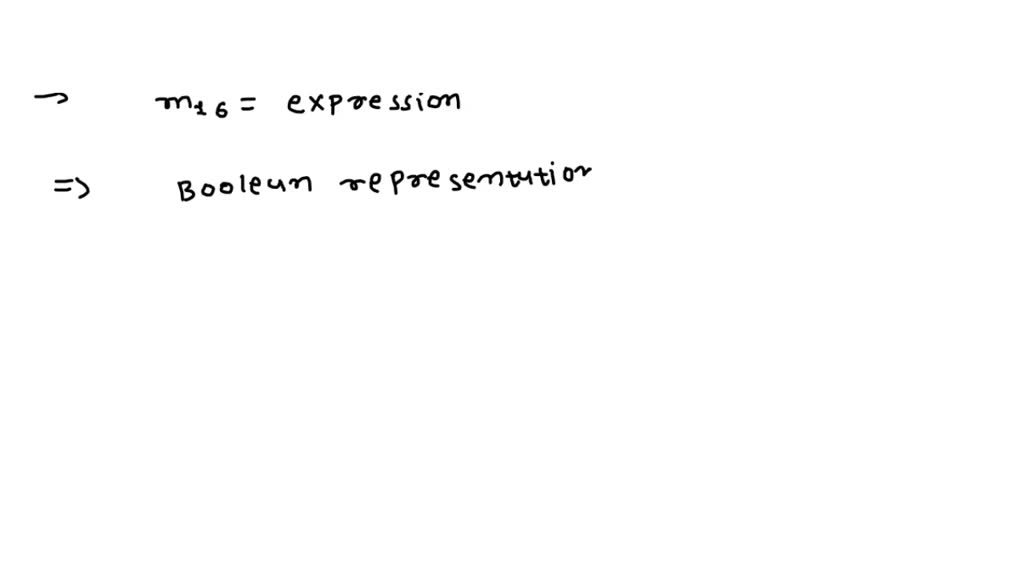 → m₁₆ = expression
=> Boolean representation